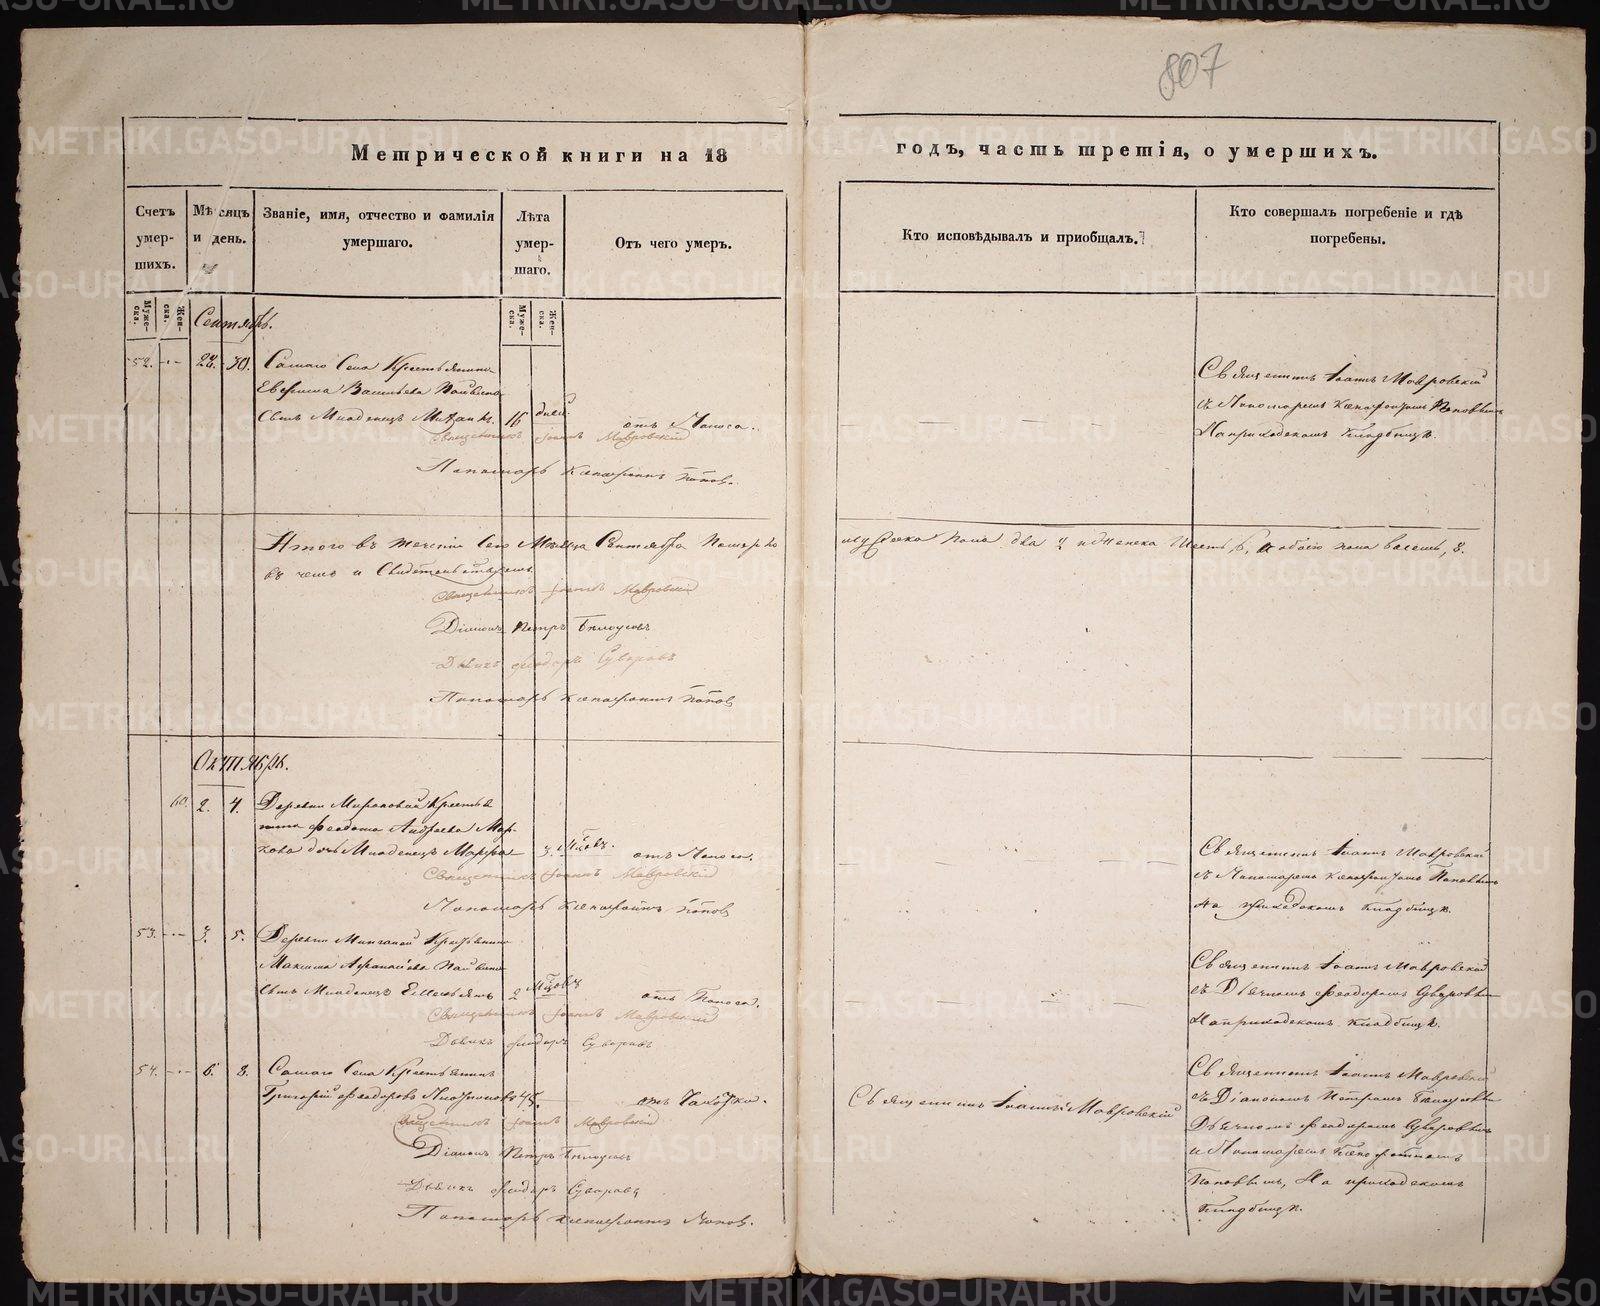 807
Метрической книги на 18
годъ, часть третія, о умершихъ.
Счетъ умер-шихъ.
Мѣсяцъ и день.
Званіе, имя, отчество и фамилія умершаго.
Лѣта умер-шаго.
Отъ чего умеръ.
Кто исповѣдывалъ и пріобщалъ.
Кто совершалъ погребеніе и гдѣ погребены.
Муже-ска.
Жен-ска.
Муже-ска.
Жен-ска.
Сентябрь.
52. 28. 30. Самаго Села Крестьянина
Васильева
сынъ Младенецъ 16 дней отъ Поноса.
Священникъ Іоаннъ Мавровскій
Пономарь Ксенофонтъ Попов.
Священникъ Іоаннъ Мавровскій
съ Пономаремъ Ксенофонтомъ Поповымъ
На приходскомъ кладбищѣ.
Итого въ теченіи сего Мѣсяца Сентября Померло
мужеска пола два 2 и женска Шесть 6, а обоего пола восемь, 8.
въ чемъ и Свидетельствуемъ
Священникъ Іоаннъ Мавровскій
Діаконъ Петръ Бѣлоусовъ
Дьячикъ Феодоръ Суворовъ
Пономарь Ксенофонтъ Попов
Октябрь.
60. 2. 4. Деревни Крестья
нина Андреева Мар-
кова дочь Младенецъ Марфа 3. Мцовъ. отъ Поноса.
Священникъ Іоаннъ Мавровскій
Пономарь Ксенофонтъ Попов
Священникъ Іоаннъ Мавровскій
съ Пономаремъ Ксенофонтомъ Поповымъ
На приходскомъ кладбищѣ.
53. 3. 5. Деревни Крестьянина
Максима
сынъ Младенецъ 2 Мцовъ отъ Поноса.
Священникъ Іоаннъ Мавровскій
Дьячикъ Феодоръ Суворовъ
Священникъ Іоаннъ Мавровскій
съ Дьячкомъ Феодоромъ Суворовымъ
На приходскомъ кладбищѣ.
54. 6. 8. Самаго Села Крестьянинъ
Григорій Феодоровъ 48. отъ Чахотки.
Священникъ Іоаннъ Мавровскій
Діаконъ Петръ Бѣлоусовъ
Дьячикъ Феодоръ Суворовъ
Пономарь Ксенофонтъ Попов.
Священникъ Іоаннъ Мавровскій
Священникъ Іоаннъ Мавровскій
съ Діакономъ Петромъ Бѣлоусовымъ
Дьячкомъ Феодоромъ Суворовымъ
и Пономаремъ Ксенофонтомъ
Поповымъ, На приходскомъ
Кладбищѣ.
METRIKI.GASO-URAL.RU